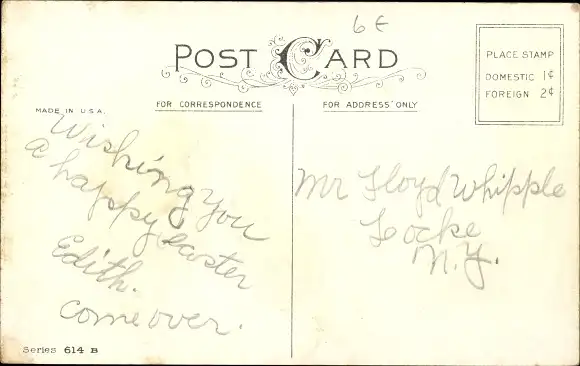 6E
POST CARD
PLACE STAMP
DOMESTIC 1¢
FOREIGN 2¢
MADE IN U.S.A.
FOR CORRESPONDENCE
FOR ADDRESS ONLY
Wishing you
a happy easter
Edith.
come over.
Mr Floyd Whipple
Locke
N.Y.
Series 614 B